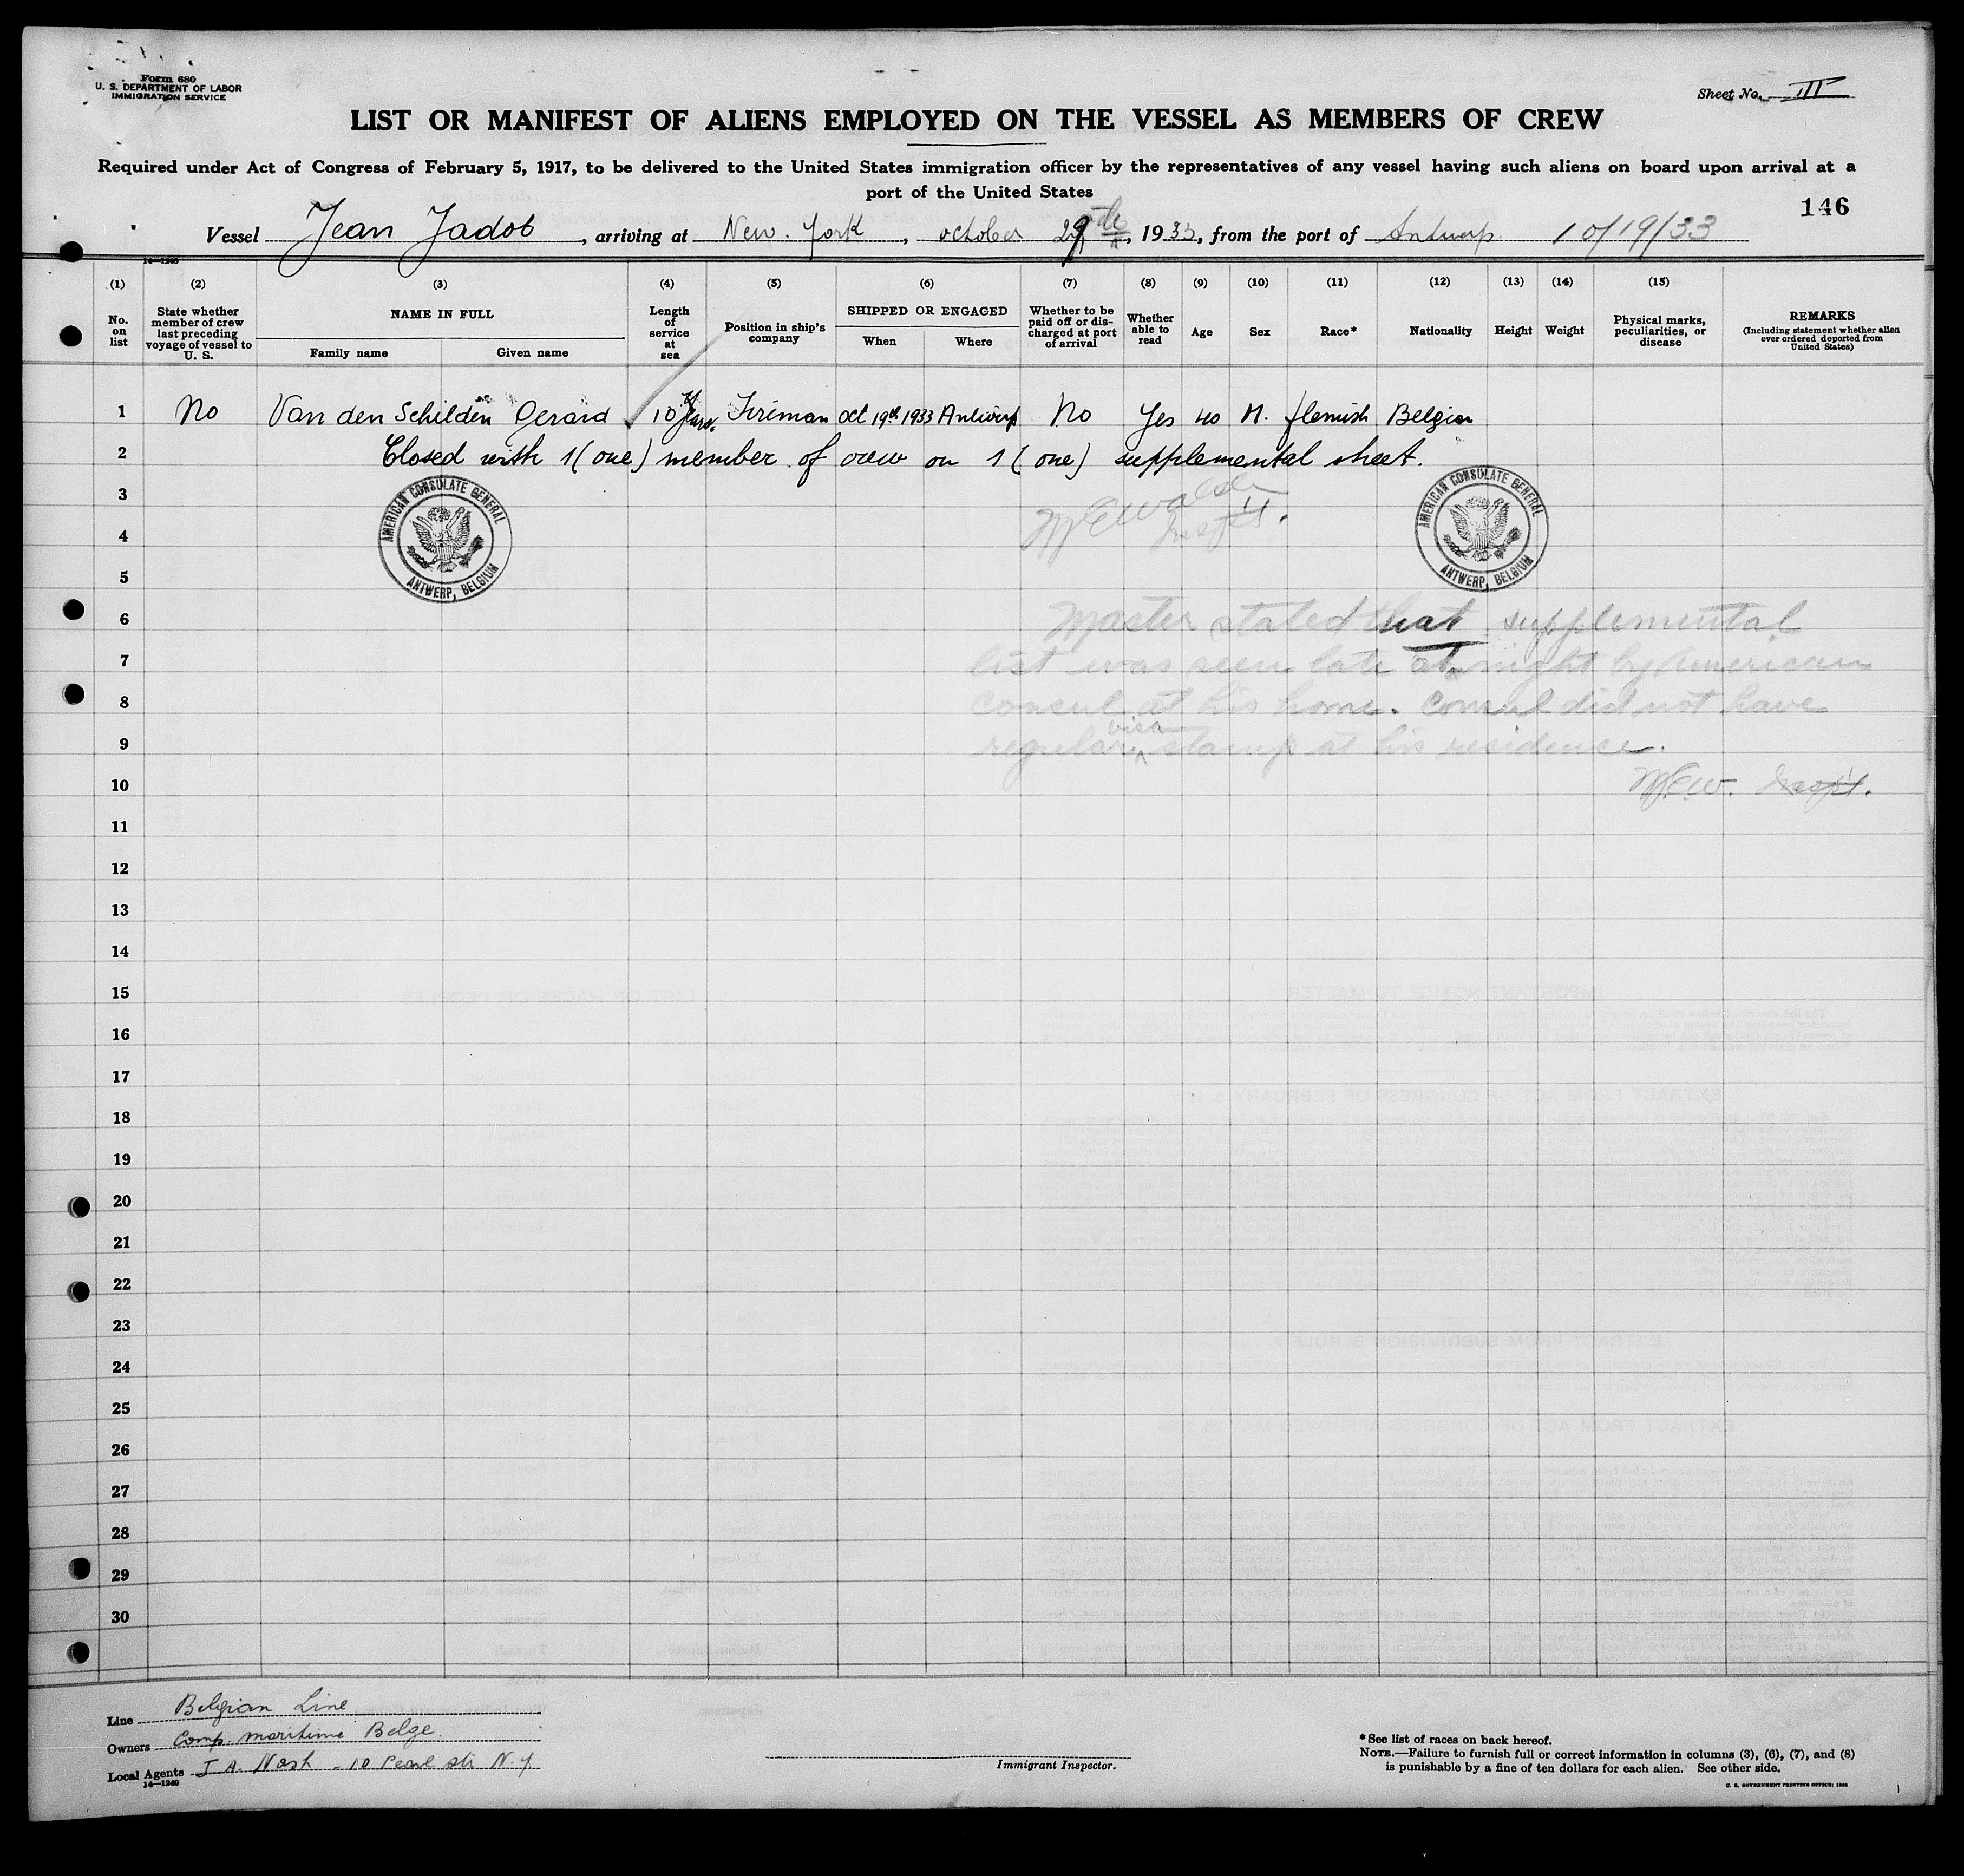 Form 680
U. S. DEPARTMENT OF LABOR
IMMIGRATION SERVICE
Sheet No. III
LIST OR MANIFEST OF ALIENS EMPLOYED ON THE VESSEL AS MEMBERS OF CREW
Required under Act of Congress of February 5, 1917, to be delivered to the United States immigration officer by the representatives of any vessel having such aliens on board upon arrival at a
port of the United States
146
Vessel Jean Jadot, arriving at New. York, october 29th, 1933, from the port of Antwerp. 10/19/33
14—1240
(1) (2) (3) (4) (5) (6) (7) (8) (9) (10) (11) (12) (13) (14) (15)
No. on list
State whether member of crew last preceding voyage of vessel to U. S.
NAME IN FULL
Family name
Given name
Length of service at sea
Position in ship's company
SHIPPED OR ENGAGED
When
Where
Whether to be paid off or discharged at port of arrival
Whether able to read
Age
Sex
Race*
Nationality
Height
Weight
Physical marks, peculiarities, or disease
REMARKS
(Including statement whether alien ever ordered deported from United States)
1 No Van den Schilden Gerard 10 years. Fireman oct 19th 1933 Antwerp No Yes 40 M. flemish Belgian
2 Closed with 1 (one) member of crew on 1 (one) supplemental sheet.
3
AMERICAN CONSULATE GENERAL
ANTWERP, BELGIUM
Inspt.
AMERICAN CONSULATE GENERAL
ANTWERP, BELGIUM
4
5
6 Master stated that supplemental
7 list was seen late at night by American
8 Consul at his home. Consul did not have
9 regular visa stamp at his residence.
10 M.E.W. Inspt.
11
12
13
14
15
16
17
18
19
20
21
22
23
24
25
26
27
28
29
30
Line Belgian Line
Owners Comp. maritime Belge.
Local Agents J A. Nash - 10 Pearl str N.Y.
14—1240
Immigrant Inspector.
*See list of races on back hereof.
NOTE.—Failure to furnish full or correct information in columns (3), (6), (7), and (8)
is punishable by a fine of ten dollars for each alien. See other side.